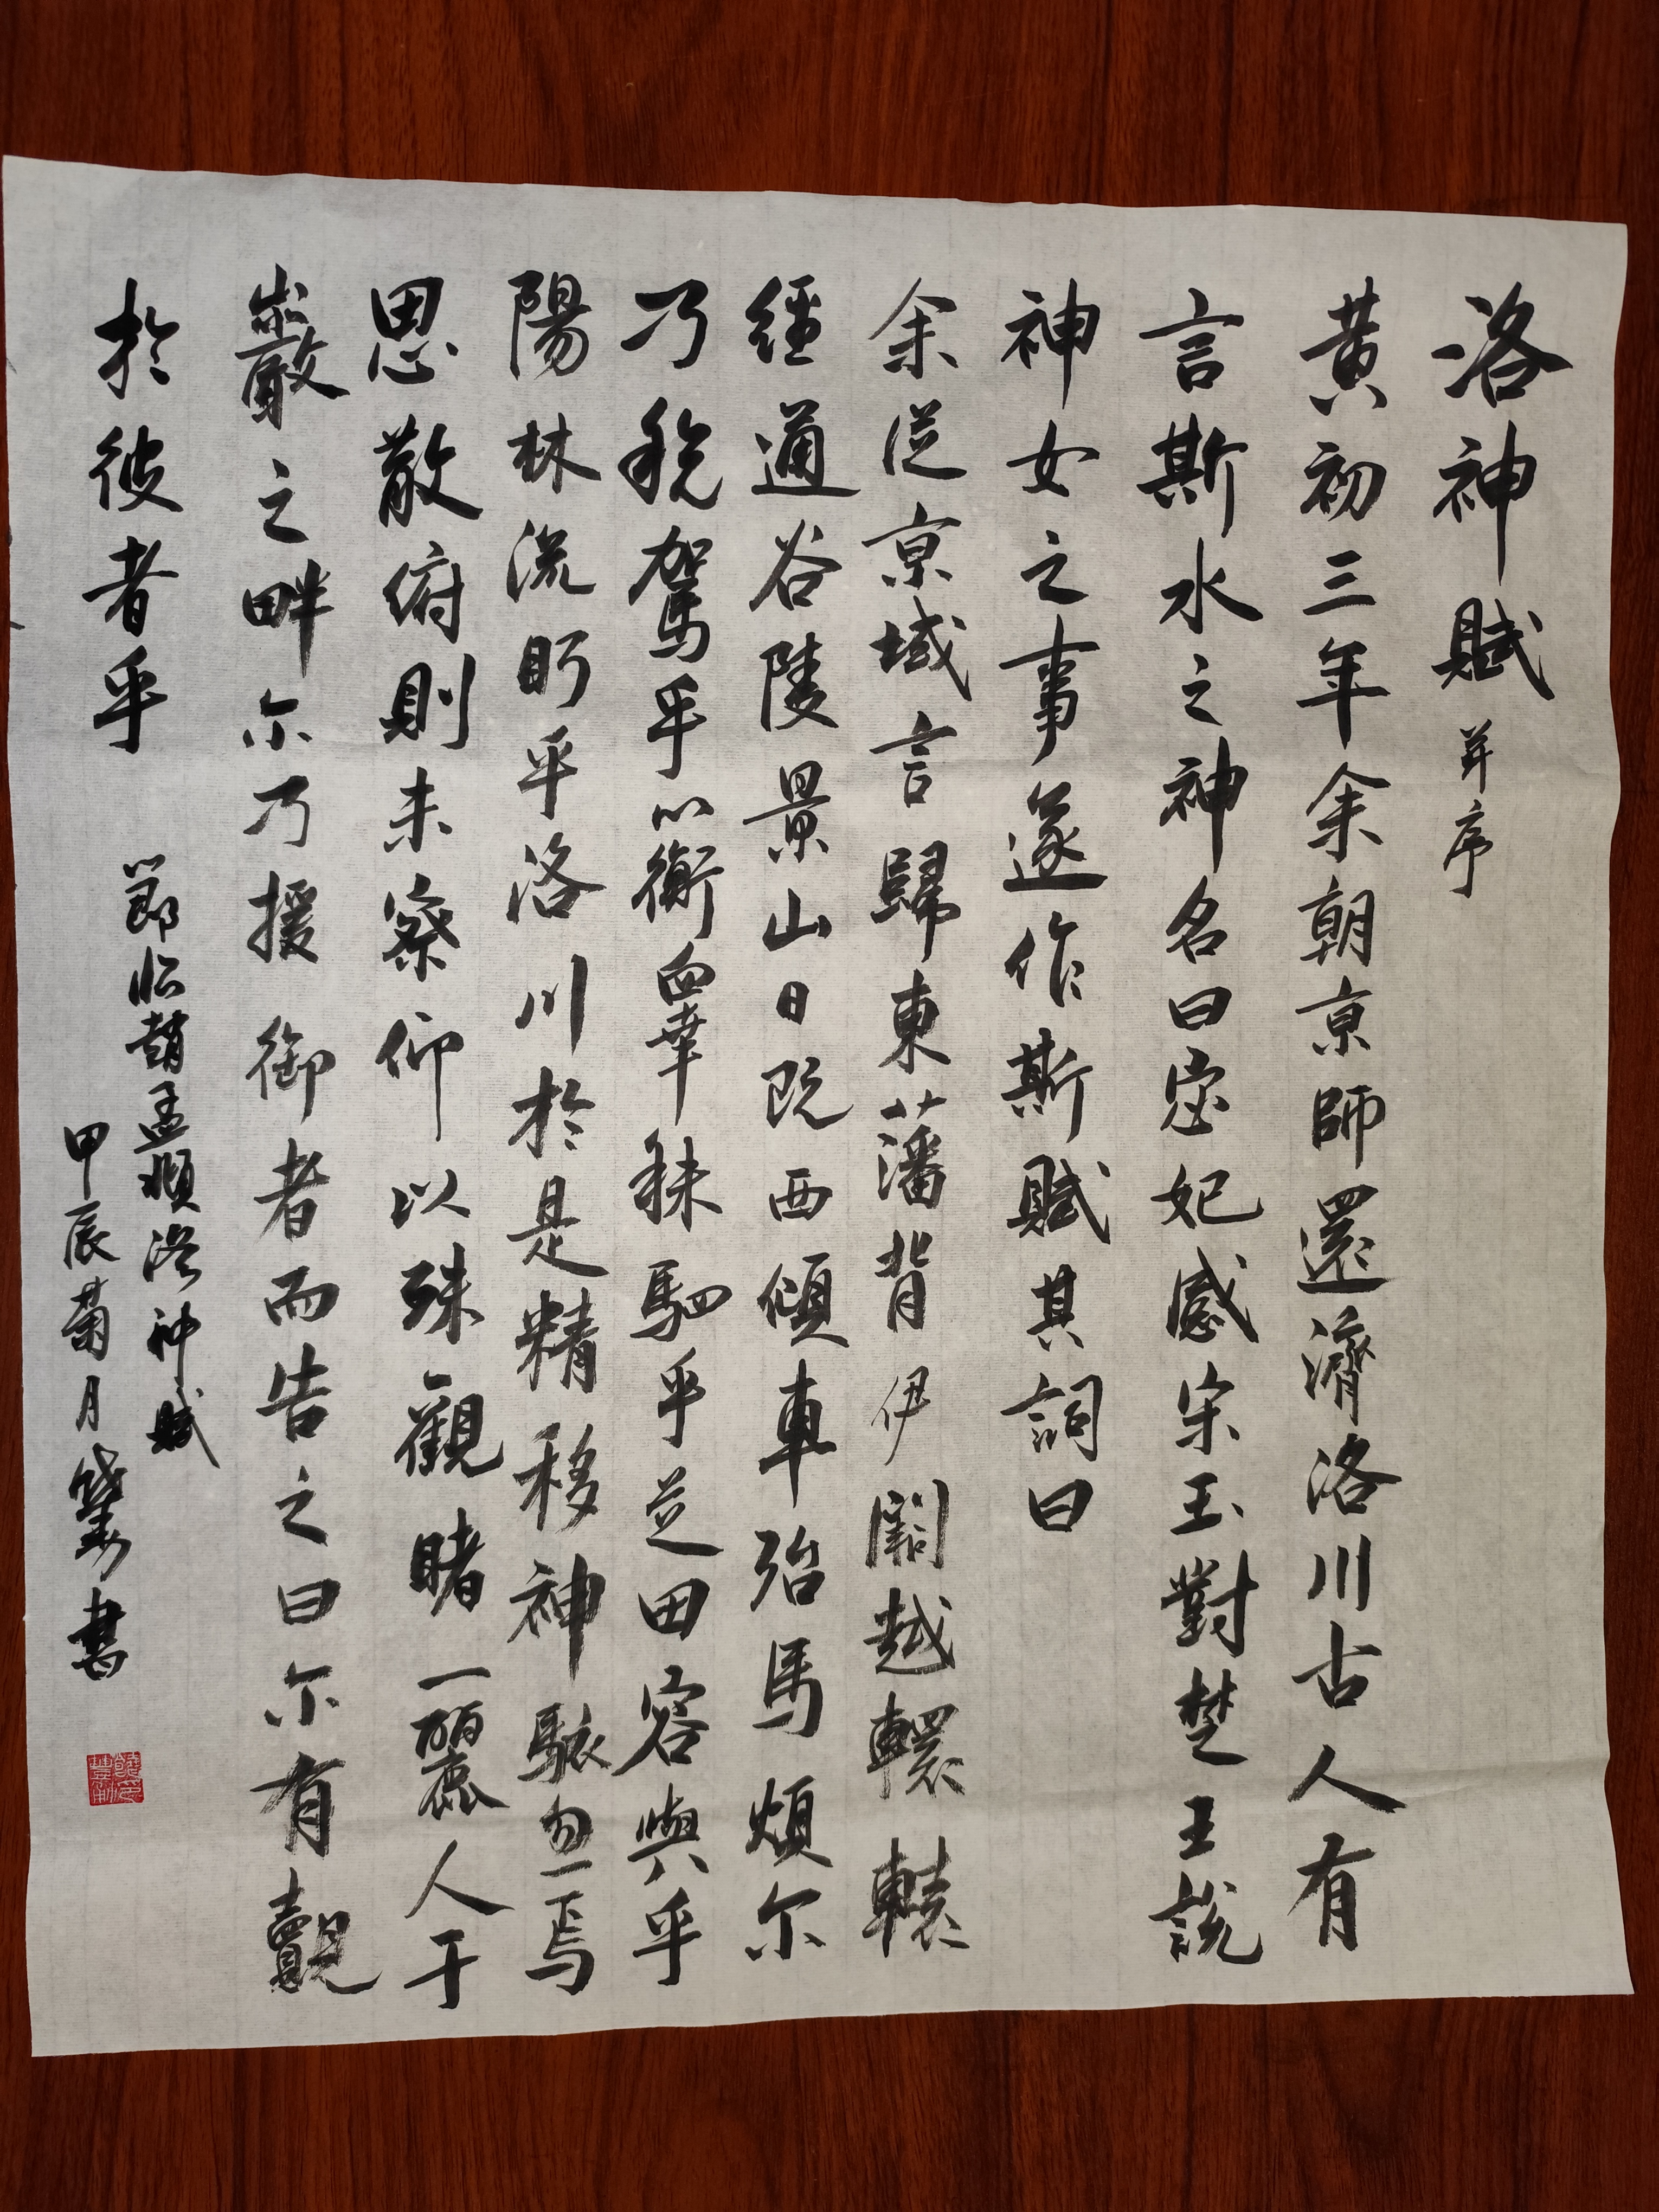 洛神賦并序
黄初三年余朝京師還濟洛川古人有
言斯水之神名曰宓妃感宋玉對楚王說
神女之事遂作斯賦其詞曰
余従京域言歸東藩背伊闕越轘轅
經通谷陵景山日既西傾車殆馬煩尓
乃稅駕乎蘅皋秣駟乎芝田容與乎
陽林流眄乎洛川於是精移神駭忽焉
思散俯則未察仰以殊觀睹一麗人于
巖之畔尓乃援御者而告之曰尓有覿
於彼者乎
節临趙孟頫洛神赋
甲辰菊月書